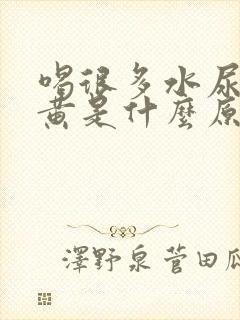 喝很多水尿
黄是什麼原
澤野泉菅田